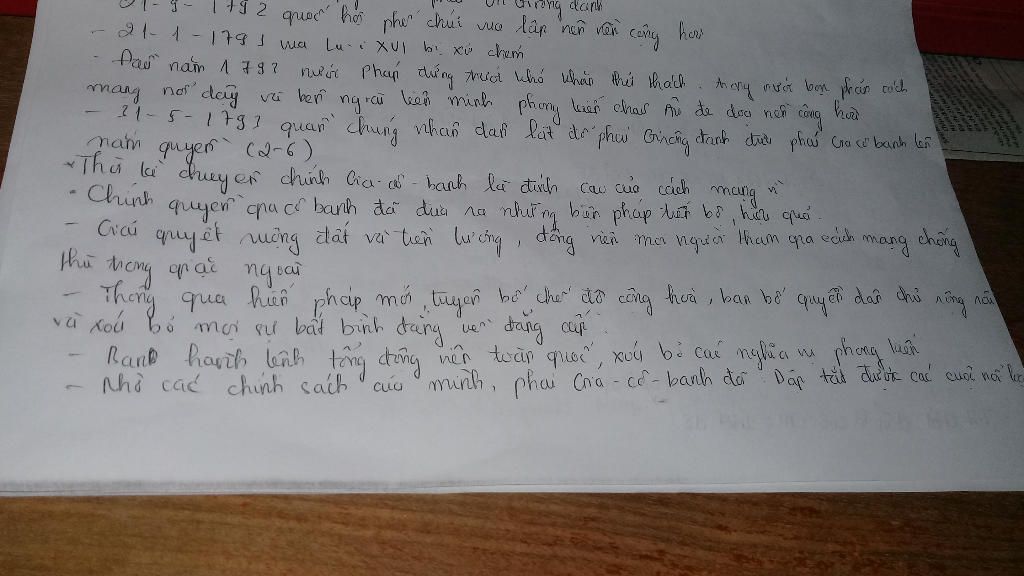 21-9-1792 quốc hội phế chức vua lập nên nền cộng hoà
- 21-1-1793 vua Lu-i XVI bị xử chém
- Đầu năm 1793 nước Pháp đứng trước khó khăn thử thách. trong nước bọn phản cách
mạng nổi dậy và bên ngoài liên minh phong kiến châu Âu đe doạ nền cộng hoà
- 31-5-1793 quần chúng nhân dân lật đổ phái Girông đanh đưa phái Gia cô banh lên
nắm quyền (2-6)
* Thời kì chuyên chính Gia-cô-banh là đỉnh cao của cách mạng
• Chính quyền gia cô banh đã đưa ra những biện pháp tiến bộ, hiệu quả.
- Giải quyết ruộng đất và tiền lương, động viên mọi người tham gia cách mạng chống
thù trong giặc ngoài
- Thông qua hiến pháp mới, tuyên bố chế độ cộng hoà, ban bố quyền dân chủ rộng rãi
và xoá bỏ mọi sự bất bình đẳng về đẳng cấp.
- Ban hành lệnh tổng động viên toàn quốc, xoá bỏ các nghĩa vụ phong kiến
- Nhờ các chính sách của mình, phái Gia-cô-banh đã Dập tắt được các cuộc nổi loạn